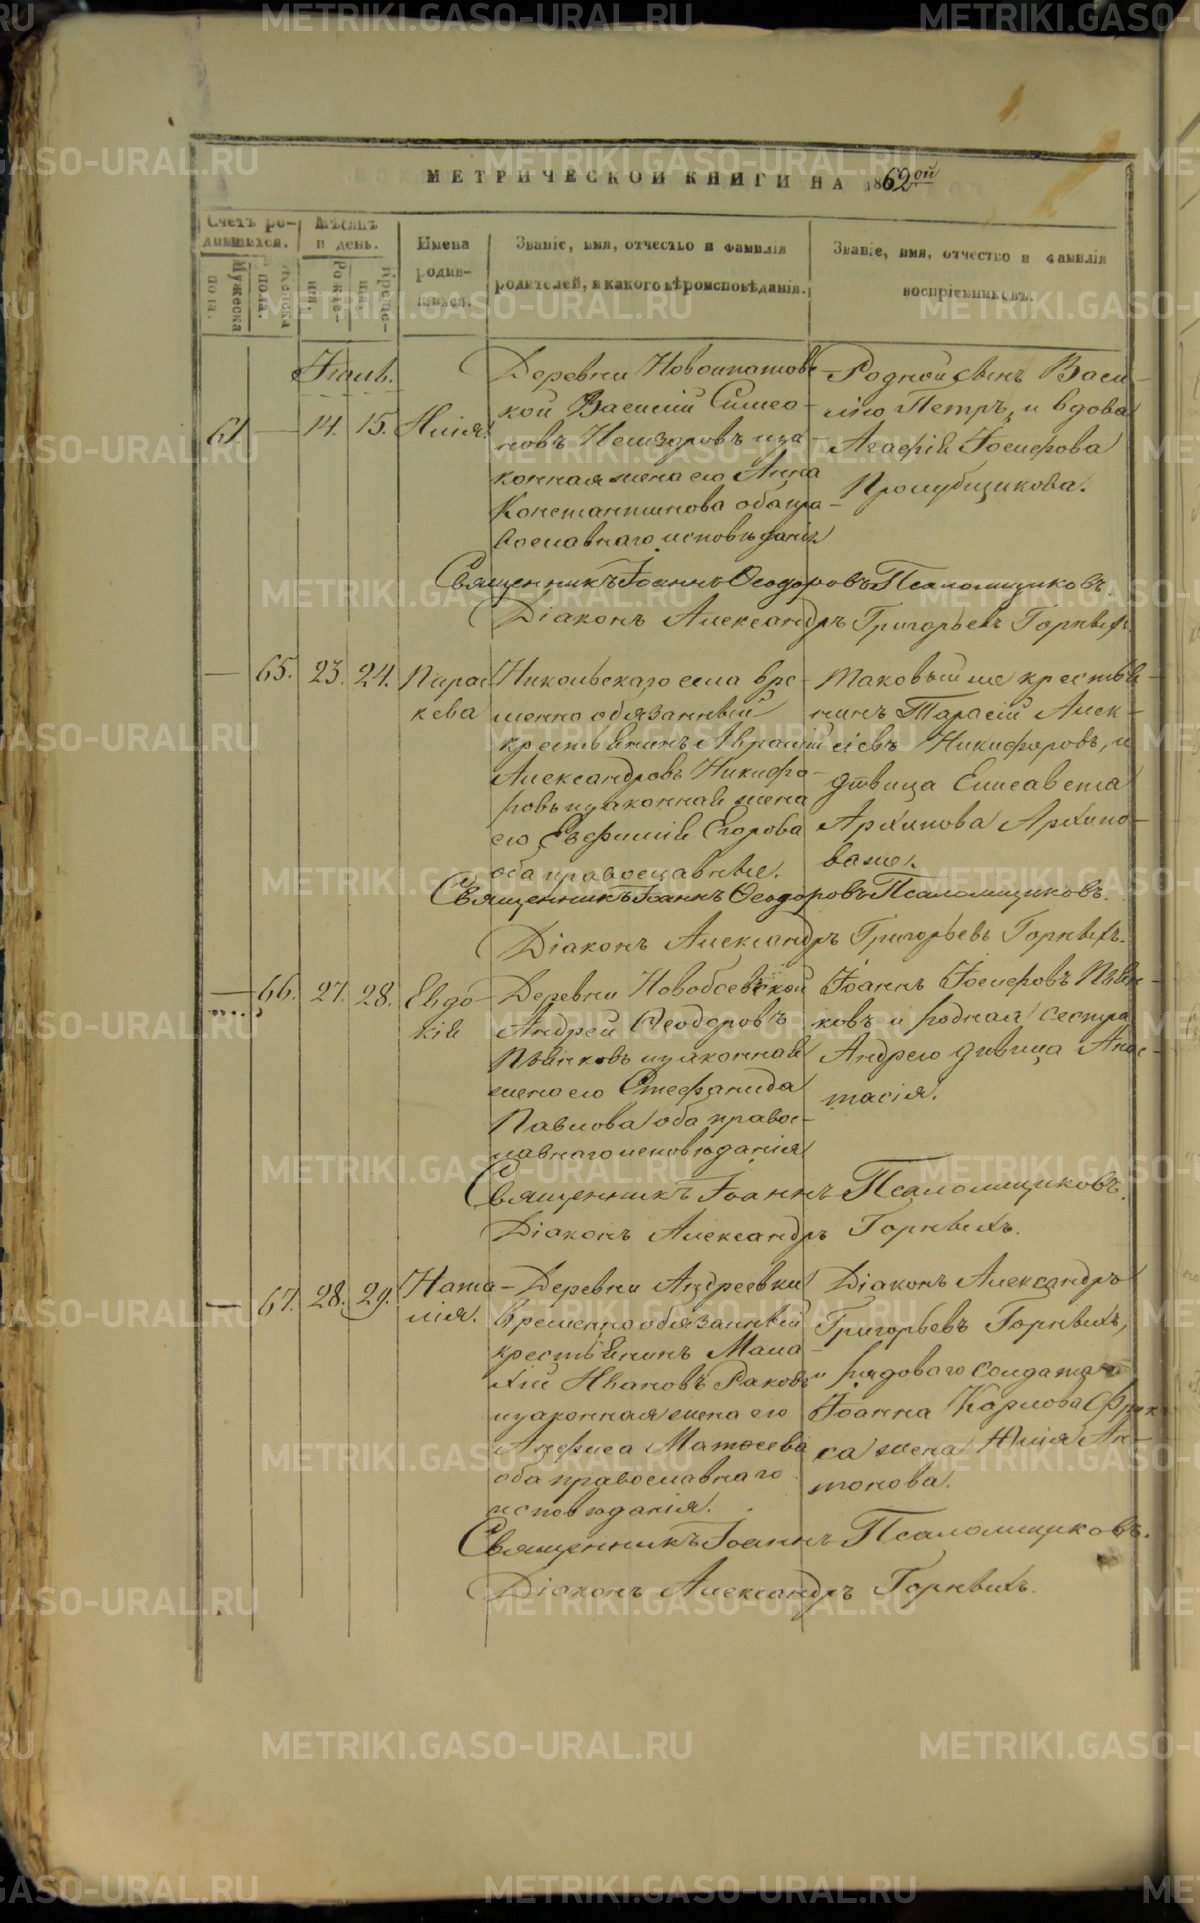 МЕТРИЧЕСКОЙ КНИГИ НА 1862ой
Счетъ ро-
дившихся.
Мужеска
пола.
Женска
пола.
Мѣсяцъ
и день.
Рожде-
нія.
Креще-
нія.
Имена
родив-
шихся.
Званіе, имя, отчество и фамилія
родителей, и какого вѣроисповѣданія.
Званіе, имя, отчество и фамилія
воспріемниковъ.
61. — 14. 15. Илія.
кой Василій Симео-
новъ
конная жена его Анна
Константинова оба пра-
вославнаго исповѣданія
Родной сынъ Васи-
лію Петръ, и вдова
Агафія Іосифова
Пролубщикова.
Священникъ Іоаннъ Ѳеодоровъ Псаломщиковъ
Діаконъ Александръ Григорьевъ Горныхъ
— 65. 23. 24. Парас-
кева
Никольскаго села вре-
менно обязанный
крестьянинъ Аврамій
Александровъ Никифо-
ровъ и законная жена
его Евфимія Егорова
оба православные.
Таковый же крестья-
нинъ Тарасій Алек-
сіевъ Никифоровъ, и
дѣвица Елисавета
Архипова Архипо-
ва же.
Священникъ Іоаннъ Ѳеодоровъ Псаломщиковъ.
Діаконъ Александръ Григорьевъ Горныхъ.
— 66. 27. 28. Евдо-
кія
Деревни Новобоевской
Андрей Ѳеодоровъ
Пьянковъ и законная
жена его Стефанида
Павлова оба правос-
лавнаго исповѣданія
Іоаннъ Іосифовъ Пьян-
ковъ и родная сестра
Андрею дѣвица Анас-
тасія.
Священникъ Іоаннъ Псаломщиковъ.
Діаконъ Александръ Горныхъ.
— 67. 28. 29. Ната-
лія.
Деревни Андреевки
временно обязанный
крестьянинъ Мала-
хій Ивановъ Раковъ
и законная жена его
Анфиса Матѳеева
оба православнаго
исповѣданія.
Діаконъ Александръ
Григорьевъ Горныхъ,
и рядоваго солдата
Іоанна Карлова
са жена Юлія Ан-
тонова.
Священникъ Іоаннъ Псаломщиковъ.
Діаконъ Александръ Горныхъ.
METRIKI.GASO-URAL.RU